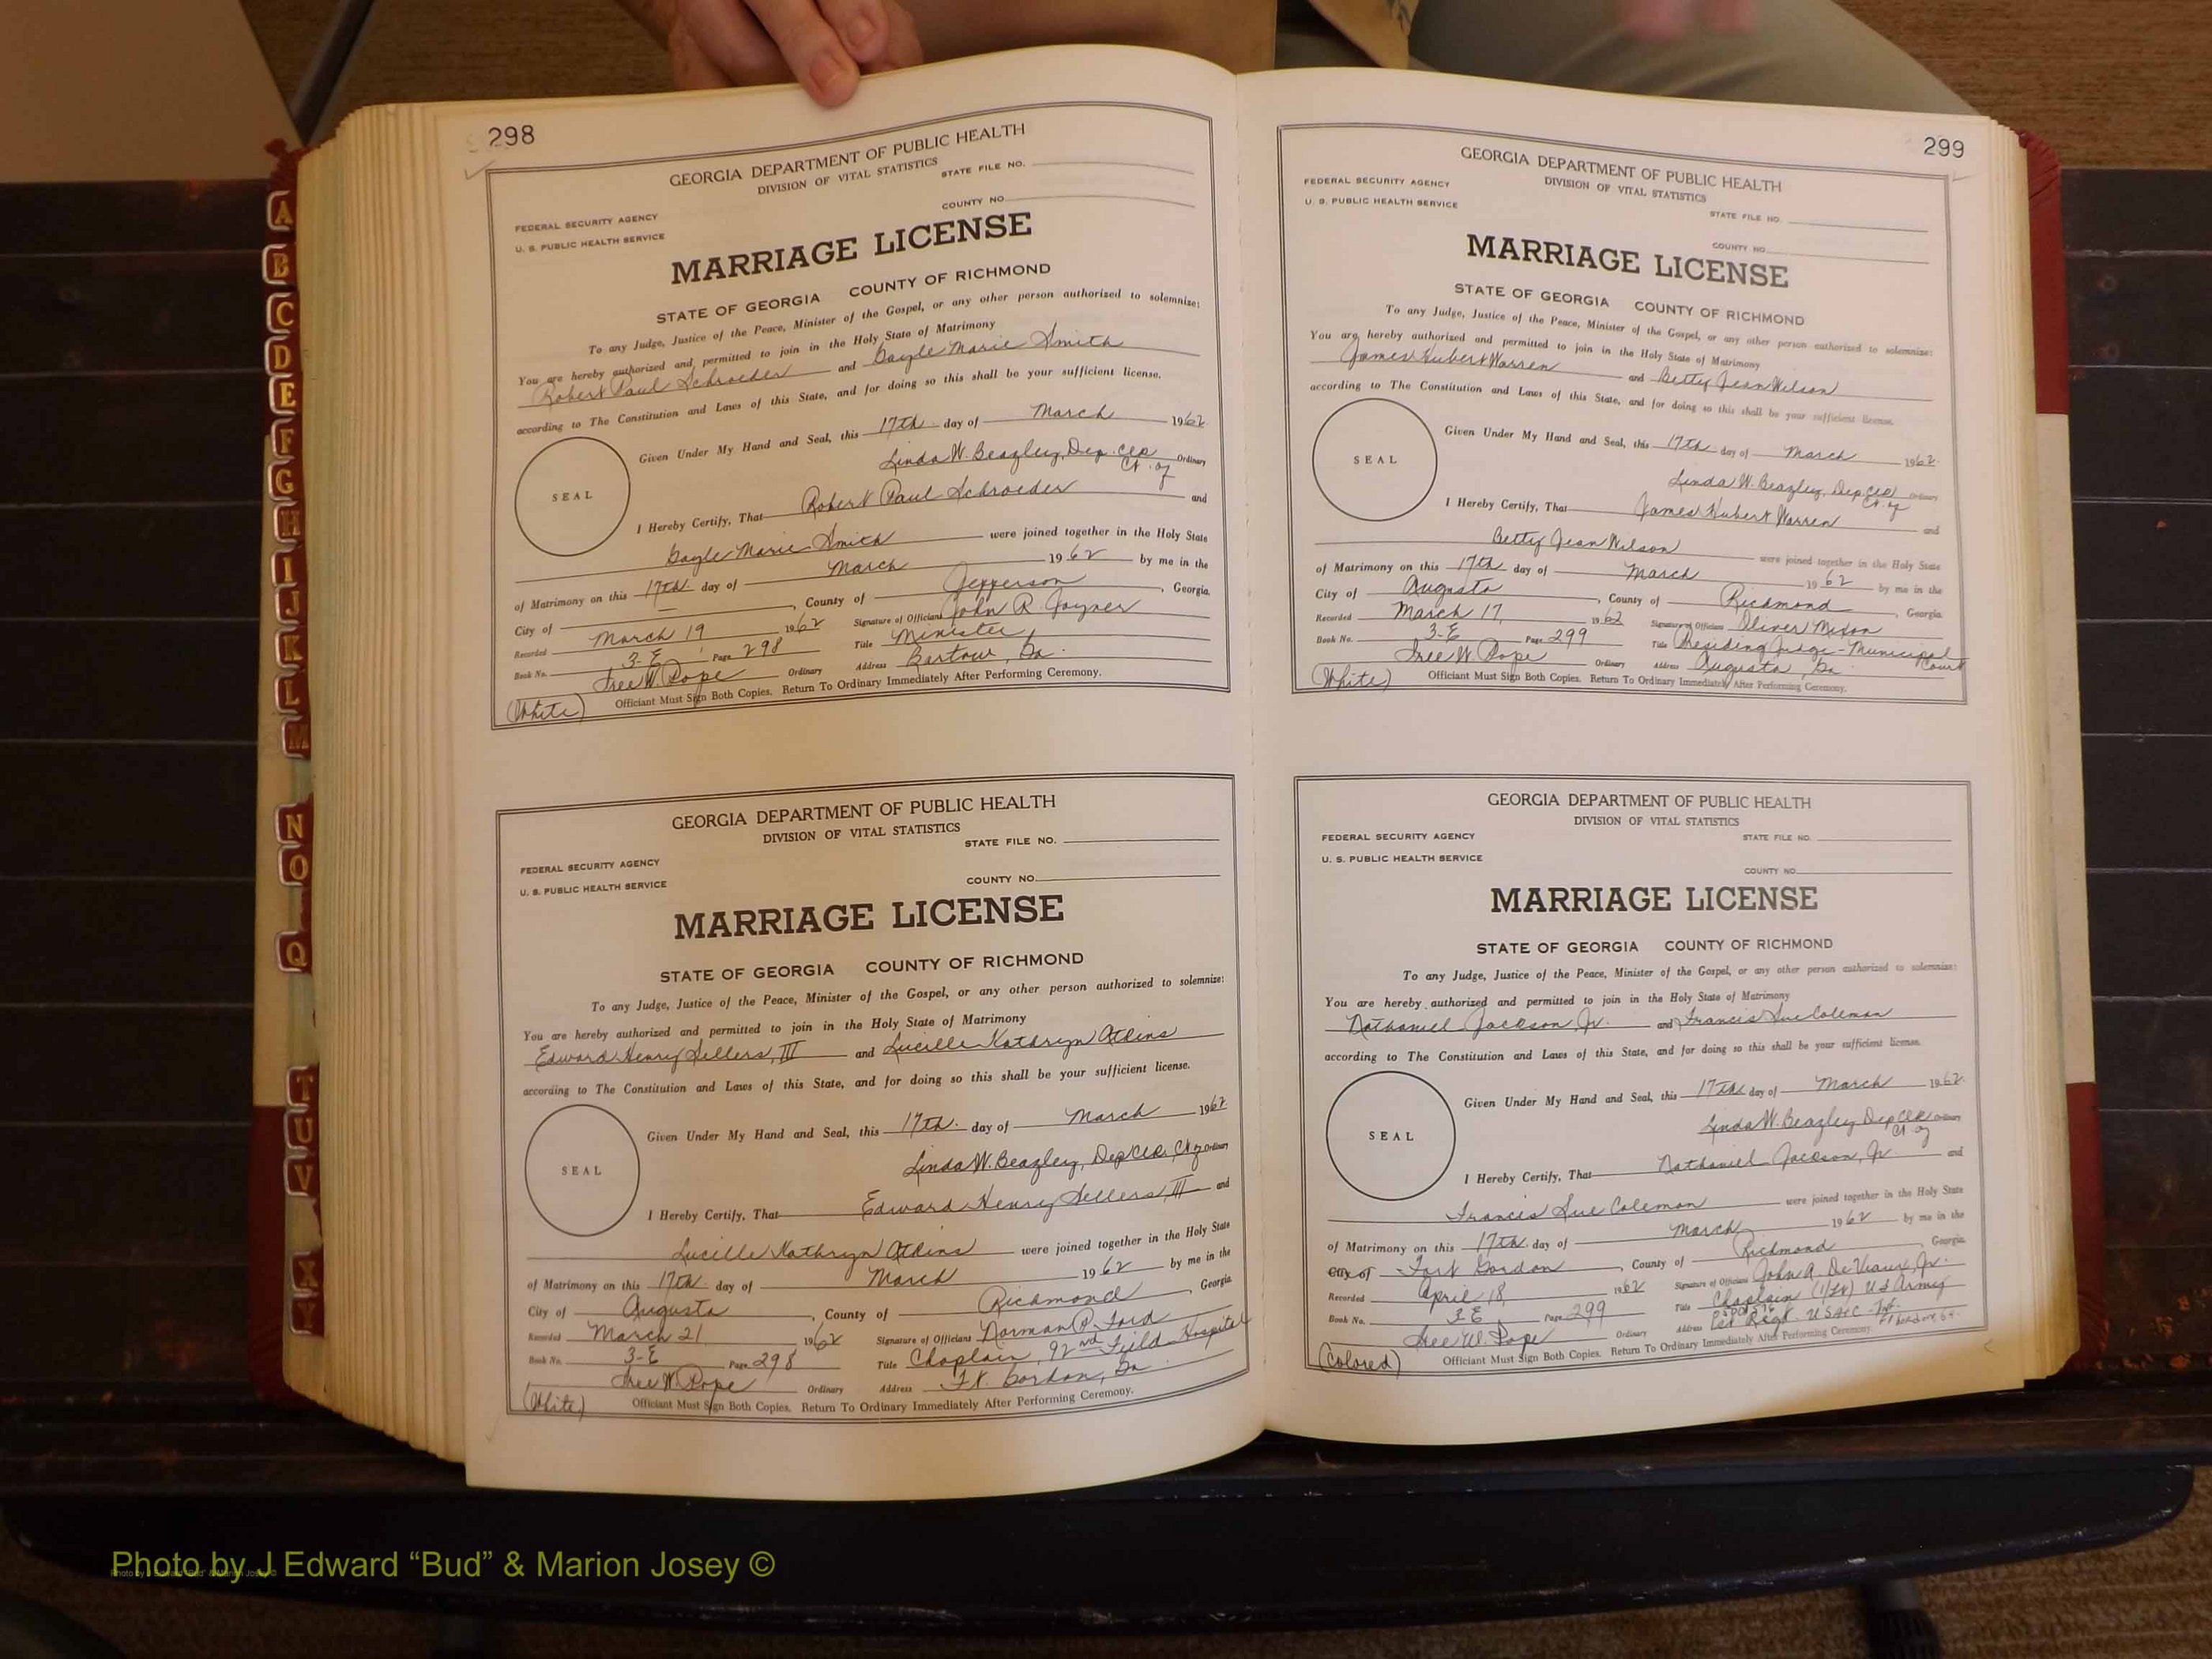 298
GEORGIA DEPARTMENT OF PUBLIC HEALTH
DIVISION OF VITAL STATISTICS
STATE FILE NO.
FEDERAL SECURITY AGENCY
COUNTY NO.
U. S. PUBLIC HEALTH SERVICE
MARRIAGE LICENSE
STATE OF GEORGIA COUNTY OF RICHMOND
To any Judge, Justice of the Peace, Minister of the Gospel, or any other person authorized to solemnize:
You are hereby authorized and permitted to join in the Holy State of Matrimony
Robert Paul Schroeder and Gayle Marie Smith
according to The Constitution and Laws of this State, and for doing so this shall be your sufficient license.
Given Under My Hand and Seal, this 17th day of March 1962
Linda W. Beazley, Dep. Clk Ordinary
Ct. of
SEAL
I Hereby Certify, That Robert Paul Schroeder and
Gayle Marie Smith were joined together in the Holy State
of Matrimony on this 17th day of March 1962 by me in the
City of — , County of Jefferson , Georgia.
Recorded March 19 1962 Signature of Officiant John R. Joyner
Book No. 3-E Page 298 Title Minister
Free W. Pope Ordinary Address Bartow, Ga.
(White) Officiant Must Sign Both Copies. Return To Ordinary Immediately After Performing Ceremony.
GEORGIA DEPARTMENT OF PUBLIC HEALTH
DIVISION OF VITAL STATISTICS
STATE FILE NO.
FEDERAL SECURITY AGENCY
COUNTY NO.
U. S. PUBLIC HEALTH SERVICE
MARRIAGE LICENSE
STATE OF GEORGIA COUNTY OF RICHMOND
To any Judge, Justice of the Peace, Minister of the Gospel, or any other person authorized to solemnize:
You are hereby authorized and permitted to join in the Holy State of Matrimony
Edward Henry Sellers, III and Lucille Kathryn Atkins
according to The Constitution and Laws of this State, and for doing so this shall be your sufficient license.
Given Under My Hand and Seal, this 17th. day of March 1962
Linda W. Beazley, Dep Clk, Ct of Ordinary
SEAL
I Hereby Certify, That Edward Henry Sellers, III and
Lucille Kathryn Atkins were joined together in the Holy State
of Matrimony on this 17th. day of March 1962 by me in the
City of Augusta , County of Richmond , Georgia
Recorded March 21 1962 Signature of Officiant Norman P. Ford
Book No. 3-E Page 298 Title Chaplain, 92nd Field Hospital
Free W. Pope Ordinary Address Ft. Gordon, Ga.
(White) Officiant Must Sign Both Copies. Return To Ordinary Immediately After Performing Ceremony.
299
GEORGIA DEPARTMENT OF PUBLIC HEALTH
DIVISION OF VITAL STATISTICS
FEDERAL SECURITY AGENCY
STATE FILE NO.
U. S. PUBLIC HEALTH SERVICE
COUNTY NO.
MARRIAGE LICENSE
STATE OF GEORGIA COUNTY OF RICHMOND
To any Judge, Justice of the Peace, Minister of the Gospel, or any other person authorized to solemnize:
You are hereby authorized and permitted to join in the Holy State of Matrimony
James Hubert Warren and Betty Jean Wilson
according to The Constitution and Laws of this State, and for doing so this shall be your sufficient license.
Given Under My Hand and Seal, this 17th day of March 1962.
Linda W. Beazley, Dep Clk Ordinary
Ct. of
SEAL
I Hereby Certify, That James Hubert Warren and
Betty Jean Wilson were joined together in the Holy State
of Matrimony on this 17th day of March 1962 by me in the
City of Augusta , County of Richmond , Georgia
Recorded March 17, 1962 Signature of Officiant Oliver Mixon
Book No. 3-E Page 299 Title Presiding Judge - Municipal Court
Free W. Pope Ordinary Address Augusta, Ga.
(White) Officiant Must Sign Both Copies. Return To Ordinary Immediately After Performing Ceremony.
GEORGIA DEPARTMENT OF PUBLIC HEALTH
DIVISION OF VITAL STATISTICS
FEDERAL SECURITY AGENCY STATE FILE NO.
U. S. PUBLIC HEALTH SERVICE
COUNTY NO.
MARRIAGE LICENSE
STATE OF GEORGIA COUNTY OF RICHMOND
To any Judge, Justice of the Peace, Minister of the Gospel, or any other person authorized to solemnize:
You are hereby authorized and permitted to join in the Holy State of Matrimony
Nathaniel Jackson, Jr. and Francis Sue Coleman
according to The Constitution and Laws of this State, and for doing so this shall be your sufficient license.
Given Under My Hand and Seal, this 17th day of March 1962.
Linda W. Beazley Dep Clk Ordinary
Ct of
SEAL
I Hereby Certify, That Nathaniel Jackson, Jr. and
Francis Sue Coleman were joined together in the Holy State
of Matrimony on this 17th day of March 1962 by me in the
City of Fort Gordon , County of Richmond , Georgia
Recorded April 18, 1962 Signature of Officiant John A. DeVeaux, Jr.
Book No. 3-E Page 299 Title Chaplain (1/Lt) US Army
Free W. Pope Ordinary Address Regt. USATC - Inf.
(Colored) Officiant Must Sign Both Copies. Return To Ordinary Immediately After Performing Ceremony
A
B
C
D
E
F
G
H
I
J
K
L
M
N
O
Q
T
U
V
X
Y
Photo by J Edward “Bud” & Marion Josey ©
Photo by J Edward “Bud” & Marion Josey ©